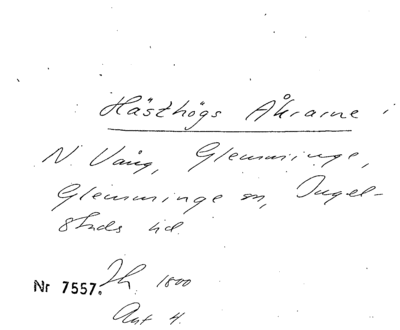 Hästhögs Åkrarne i
N. Vång, Glemminge,
Glemminge sn, Ingel-
stads hd.
Nr 7557. Jh. 1800
Akt 4.